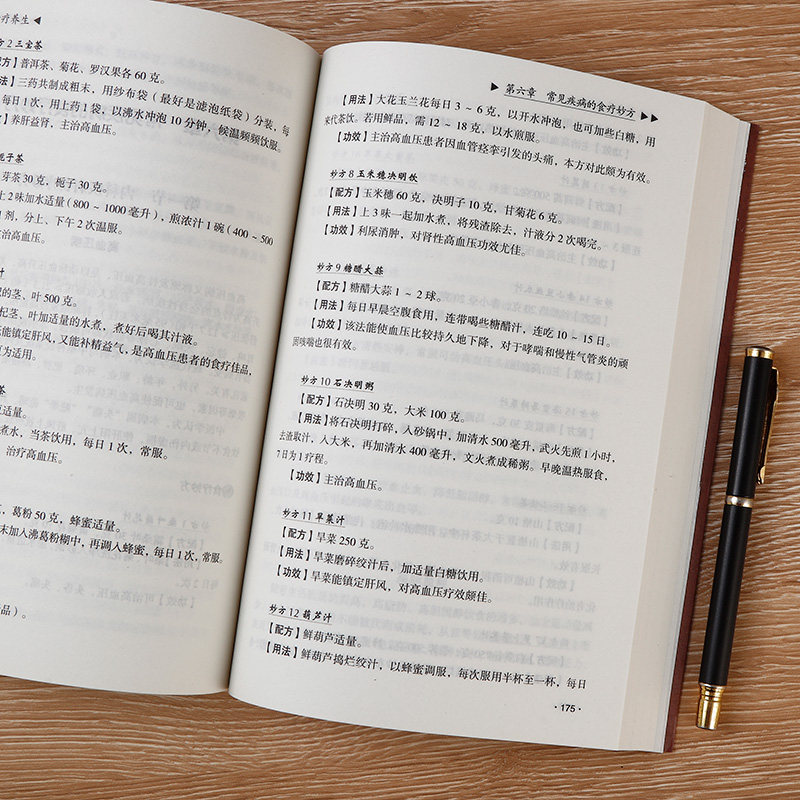 疗养生◀
方2 三宝茶
方】普洱茶、菊花、罗汉果各 60 克。
法】三药共制成粗末，用纱布袋（最好是滤泡纸袋）分装，每
每日1次，用上药1袋，以沸水冲泡 10 分钟，候温频频饮服。
】养肝益肾，主治高血压。
栀子茶
芽茶 30 克，栀子 30 克。
上2味加水适量（800 ~ 1000 毫升），煎浓汁1碗（400 ~ 500
1剂，分上、下午2次温服。
治高血压。
汁
的茎、叶 500 克。
杞茎、叶加适量的水煮，煮好后喝其汁液。
能镇定肝风，又能补精益气，是高血压患者的食疗佳品，
更为适用。
茶
适量。
煮水，当茶饮用，每日1次，常服。
治疗高血压。
，葛粉 50 克，蜂蜜适量。
末加入沸葛粉糊中，再调入蜂蜜，每日1次，常服。
品）。
▶ 第六章 常见疾病的食疗妙方 ▶▶
【用法】大花玉兰花每日 3 ~ 6 克，以开水冲泡，也可加些白糖，用
来代茶饮。若用鲜品，需 12 ~ 18 克，以水煎服。
【功效】主治高血压患者因血管痉挛引发的头痛，本方对此颇为有效。
妙方8 玉米穗决明饮
【配方】玉米穗 60 克，决明子 10 克，甘菊花 6 克。
【用法】上3味一起加水煮，将残渣除去，汁液分2次喝完。
【功效】利尿消肿，对肾性高血压功效尤佳。
妙方9 糖醋大蒜
【配方】糖醋大蒜 1 ~ 2 球。
【用法】每日早晨空腹食用，连带喝些糖醋汁，连吃 10 ~ 15 日。
【功效】该法能使血压比较持久地下降，对于哮喘和慢性气管炎的顽
固咳喘也很有效。
妙方10 石决明粥
【配方】石决明 30 克，大米 100 克。
【用法】将石决明打碎，入砂锅中，加清水 500 毫升，武火先煎1小时，
去渣取汁，入大米，再加清水 400 毫升，文火煮成稀粥。早晚温热服食，
7日为1疗程。
【功效】主治高血压。
妙方11 旱菜汁
【配方】旱菜 250 克。
【用法】旱菜磨碎绞汁后，加适量白糖饮用。
【功效】旱菜能镇定肝风，对高血压疗效颇佳。
妙方12 葫芦汁
【配方】鲜葫芦适量。
【用法】鲜葫芦捣烂绞汁，以蜂蜜调服，每次服用半杯至一杯，每日
·175·